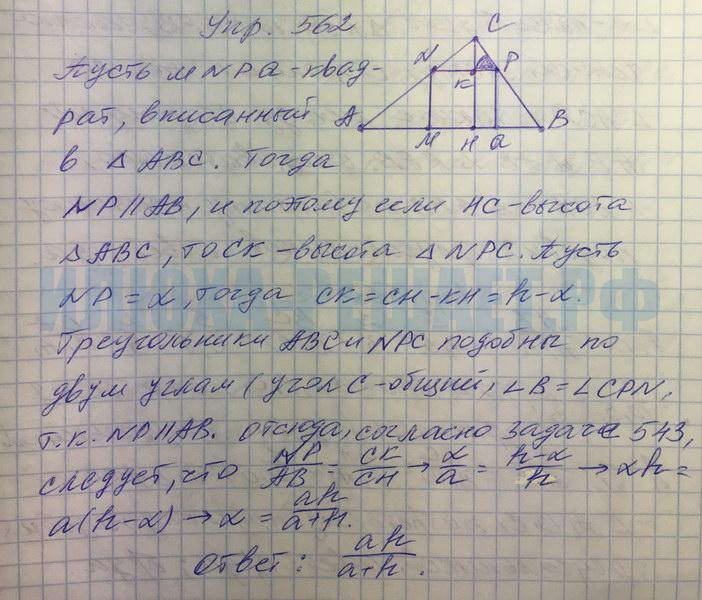 Упр. 562
Пусть MNPQ-квад-
рат, вписанный
в △ABC. Тогда
NP||AB, и поэтому если HC-высота
△ABC, то CK-высота △NPC. Пусть
NP=x, тогда CK=CH-KH=h-x.
Треугольники ABC и NPC подобны по
двум углам (угол C-общий, ∠B=∠CPN,
т.к. NP||AB. Отсюда, согласно задаче 543,
следует, что NP/AB = CK/CH → x/a = (h-x)/h → xh=
a(h-x) → x = ah/(a+h).
Ответ: ah/(a+h).
C
N
K
P
A
M
H
Q
B